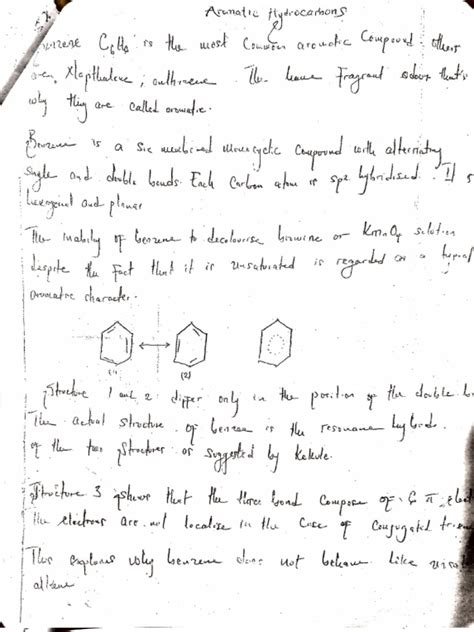 Aromatic Hydrocarbons
Benzene C6H6 is the most Common aromatic Compound. others
are, Napthalene, anthracene. They have Fragrant odour that's
why they are called aromatic.
Benzene is a six membered monocyclic Compound with alternating
single and double bonds. Each Carbon atom is sp2 hybridised. It is
hexagonal and planar
The inability of benzene to decolourise bromine or KMnO4 solution
despite the Fact that it is unsaturated is regarded as a typical
aromatic character.
(1) (2)
Structure 1 and 2 differ only in the position of the double b
The actual structure of benzene is the resonance hybride
of the two Structures as suggested by Kekule.
Structure 3 shows that the three bond Compose of 6 π elect
the electrons are not localize in the Case of Conjugated
This explains why benzene does not behave like
alkene